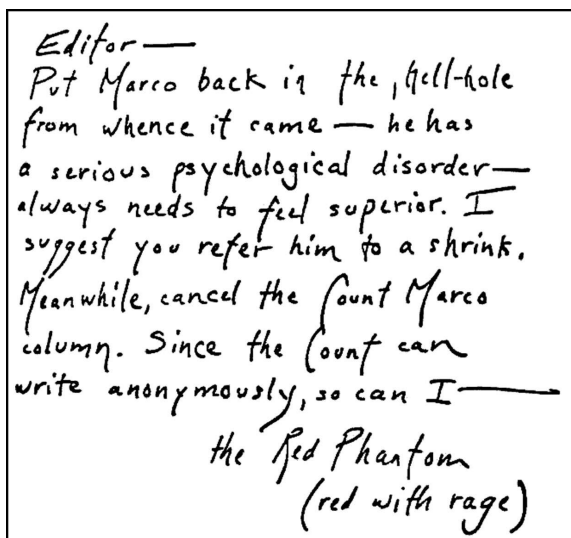 Editor —
Put Marco back in the, hell-hole
from whence it came — he has
a serious psychological disorder —
always needs to feel superior. I
suggest you refer him to a shrink.
Meanwhile, cancel the Count Marco
column. Since the Count can
write anonymously, so can I —
the Red Phantom
(red with rage)